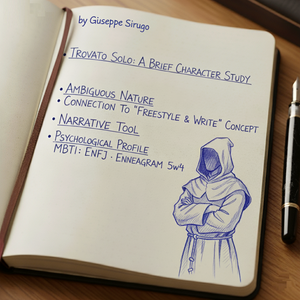 by Giuseppe Sirugo
• TROVATO SOLO: A BRIEF CHARACTER STUDY
• AMBIGUOUS NATURE
• CONNECTION TO "FREESTYLE & WRITE" CONCEPT
• NARRATIVE TOOL
• PSYCHOLOGICAL PROFILE
MBTI: ENFJ · ENNEAGRAM 5w4